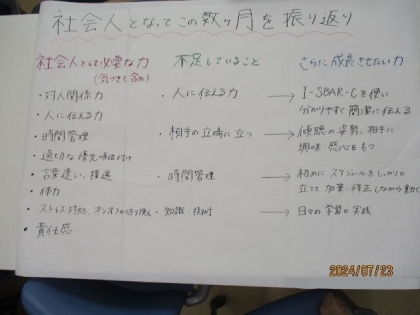 社会人となってこの数ヶ月を振り返り
社会人として必要な力
(気づきも含め)
・対人関係力
・人に伝える力
・時間管理
・適切な優先順位付け
・言葉遣い、接遇
・体力
・ストレス対処、オンオフの切り換え
・責任感
不足していること
・人に伝える力
・相手の立場に立つ
・時間管理
・知識・技術
さらに成長させたい力
→ I-SBAR-Cを使い
分かりやすく簡潔に伝える
→ 傾聴の姿勢、相手に
興味・関心をもつ
→ 初めにスケジュールをしっかり
立てて 加筆・修正しながら動く
→ 日々の学習と実践
2024/07/23